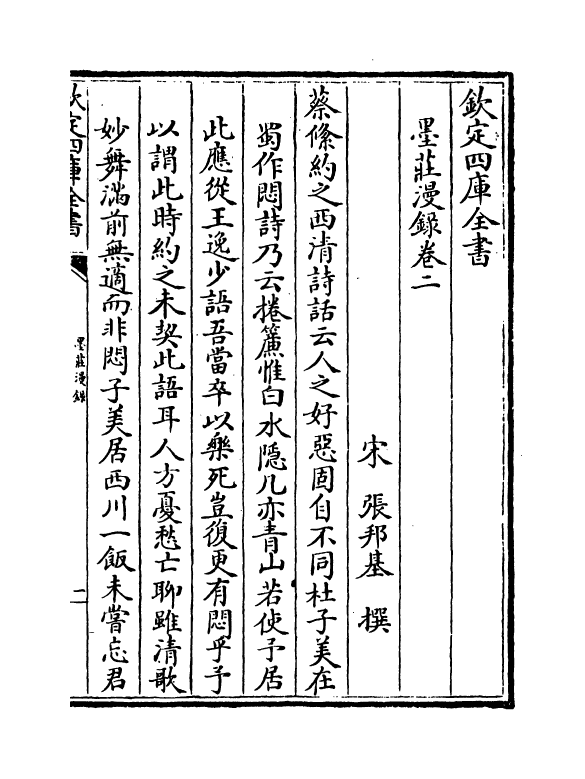 欽定四庫全書
墨莊漫録卷二
宋 張邦基 撰
蔡絛約之西清詩話云人之好惡固自不同杜子美在
蜀作悶詩乃云捲簾惟白水隱几亦青山若使予居
此應從王逸少語吾當卒以樂死豈復更有悶乎予
以謂此時約之未契此語耳人方憂愁亡聊雖清歌
妙舞滿前無適而非悶子美居西川一飯未嘗忘君
欽定四庫全書
墨莊漫録
二